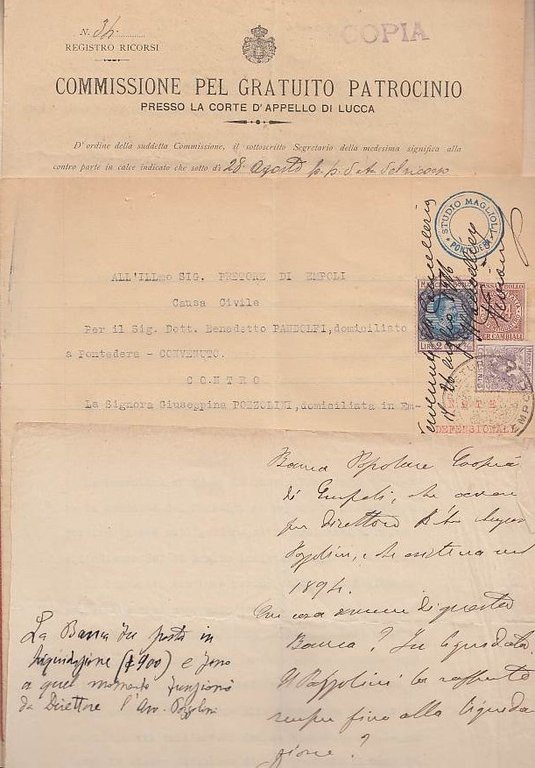 N. 34
COPIA
REGISTRO RICORSI
COMMISSIONE PEL GRATUITO PATROCINIO
PRESSO LA CORTE D'APPELLO DI LUCCA
D'ordine della suddetta Commissione, il sottoscritto Segretario della medesima significa alla
contro parte in calce indicato che sotto dì 28 agosto
STUDIO MAGLIOLI
PONTEDERA
ALL'Illmo SIG. PRETORE DI EMPOLI
Causa Civile
Per il Sig. Dott. Benedetto PANDOLFI, domiciliato
a Pontedera - CONVENUTO.
CONTRO
La Signora Giuseppina POZZOLINI, domiciliata in Em-
LIRE 2
PER CAMBIALI
DEFENSIONALE
Banca Popolare Coop
di Empoli, che aveva
per direttore
Pozzolini, e che esisteva nel
1894.
Che cosa avvenne di questa
Banca? Fu liquidata.
Il Pozzolini la
sempre fino alla liquida
zione?
La Banca fu posta in
liquidazione (1900) e fino
a quel momento funzionò
da Direttore l'Avv. Pozzolini